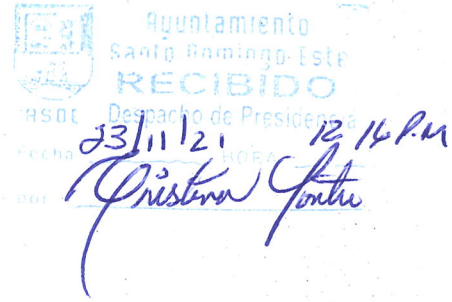 Ayuntamiento
Santo Domingo Este
RECIBIDO
ASDE Despacho de Presidencia
23/11/21 12 14 P.M
Fecha HORA
Cristina
POR